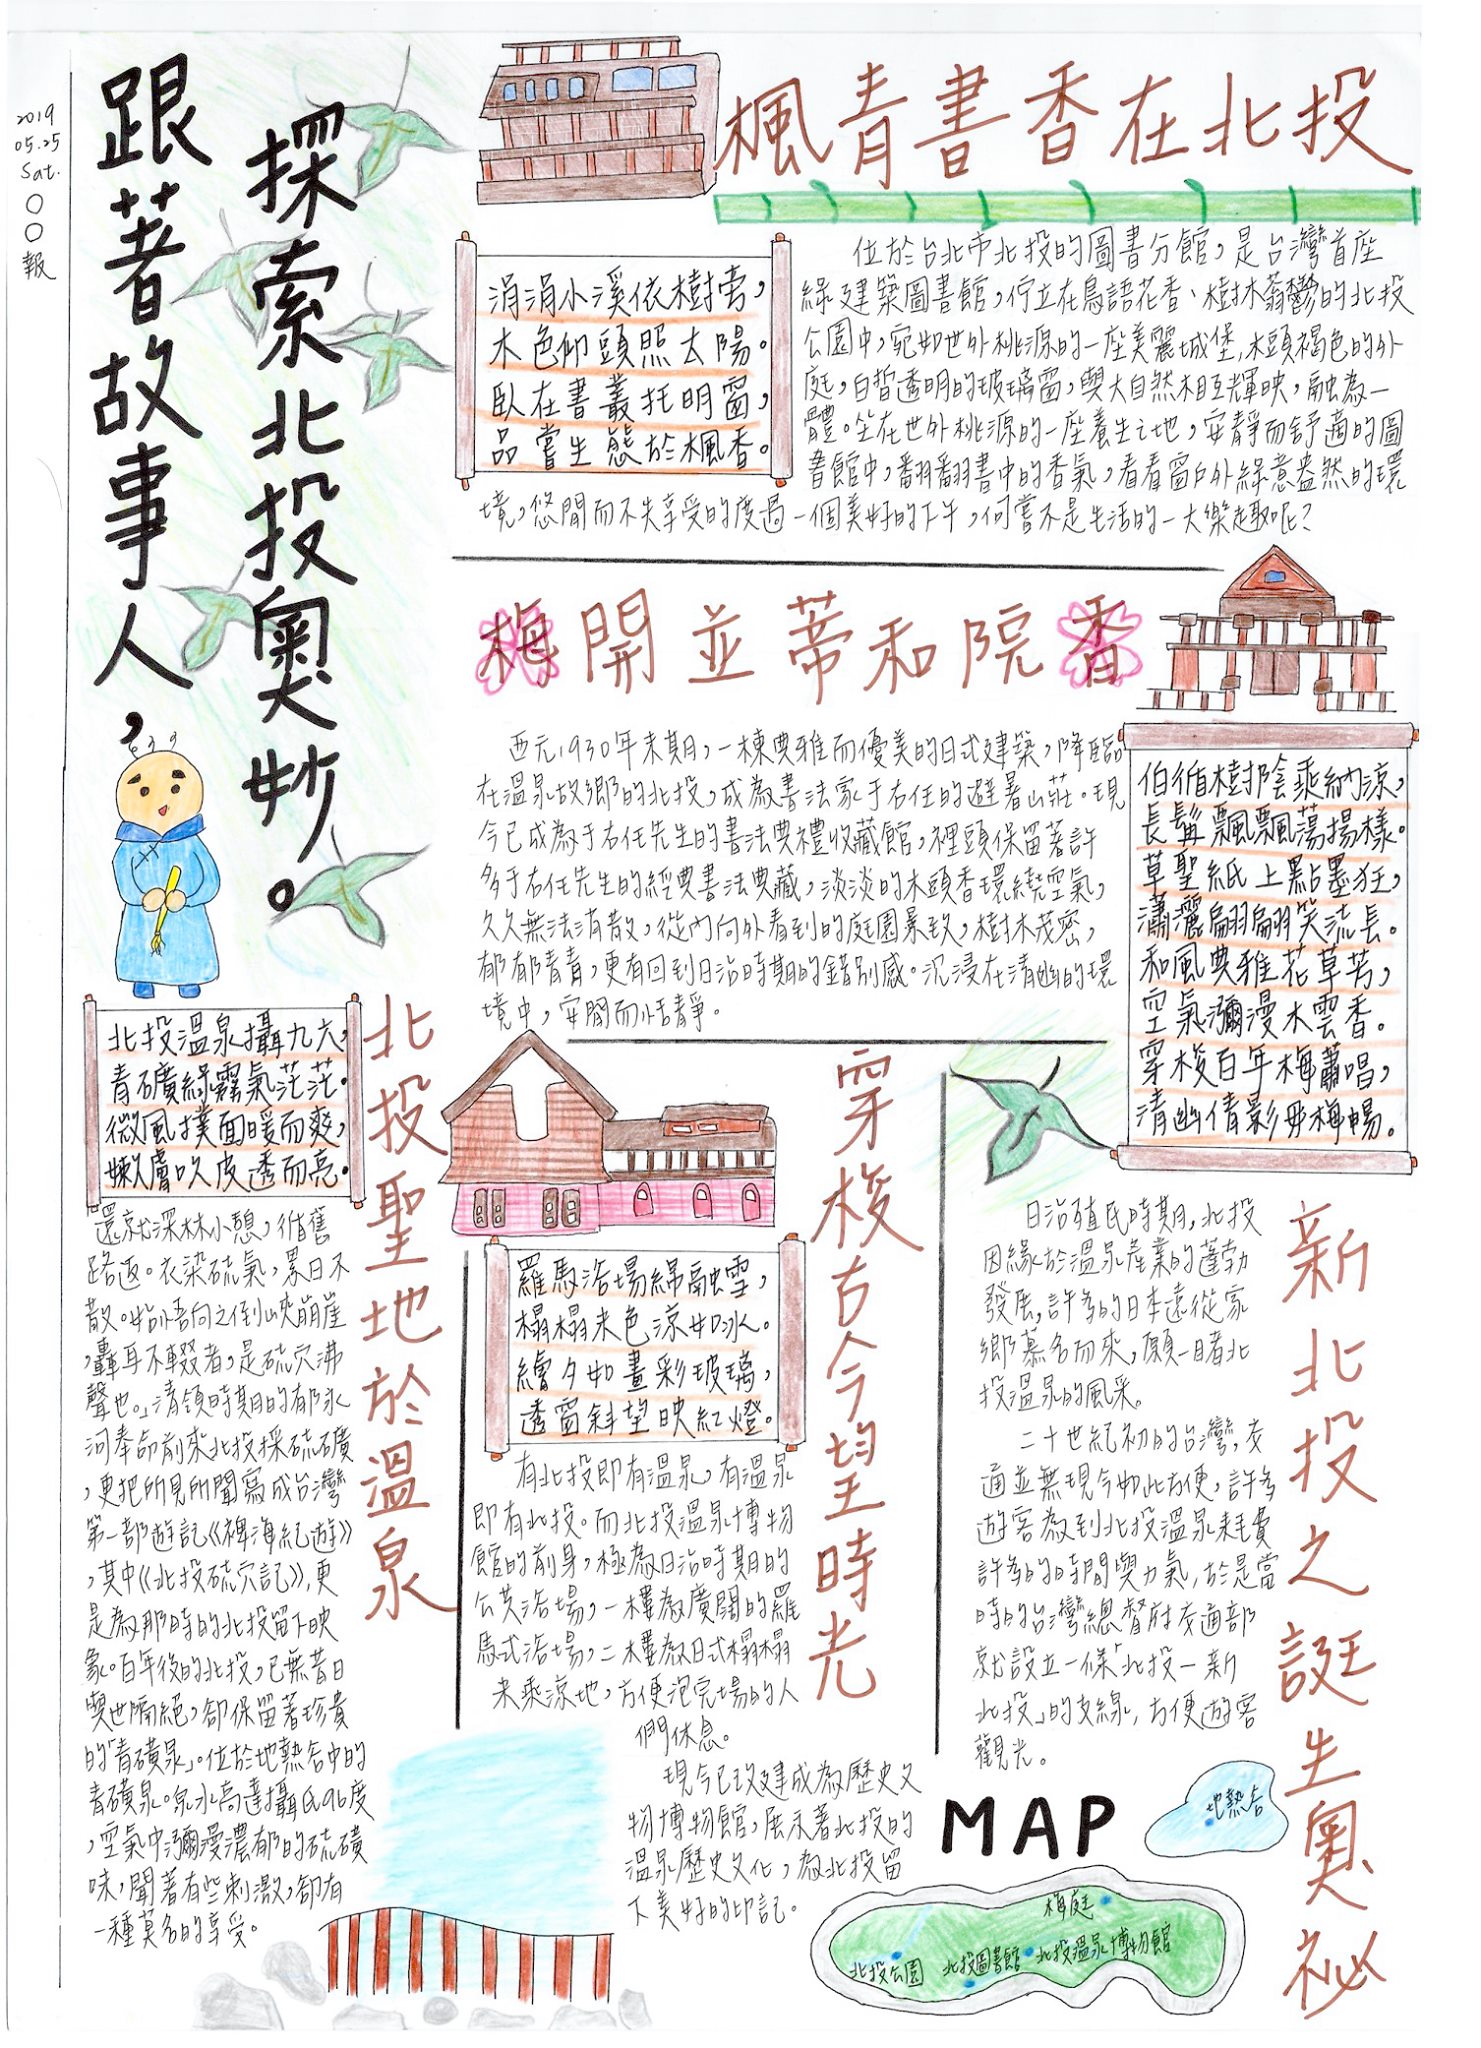 2019
05.25
Sat.
〇
〇
報
跟著故事人，
探索北投奧妙。
楓青書香在北投
涓涓小溪依樹旁，
木色仰頭照太陽。
臥在書叢托明窗，
品嘗生態於楓香。
位於台北市北投的圖書分館，是台灣首座
綠建築圖書館，佇立在鳥語花香、樹木蓊鬱的北投
公園中，宛如世外桃源的一座美麗城堡，木頭褐色的外
庭，白皙透明的玻璃窗，與大自然相互輝映，融為一
體。坐在世外桃源的一座養生之地，安靜而舒適的圖
書館中，翻翻書中的香氣，看看窗戶外綠意盎然的環
境，悠閒而不失享受的度過一個美好的下午，何嘗不是生活的一大樂趣呢？
梅開並蒂和院香
西元1930年末期，一棟典雅而優美的日式建築，降臨
在溫泉故鄉的北投，成為書法家于右任的避暑山莊。現
今已成為于右任先生的書法典禮收藏館，裡頭保留著許
多于右任先生的經典書法典藏，淡淡的木頭香環繞空氣，
久久無法消散，從內向外看到的庭園景致，樹木茂密，
郁郁青青，更有回到日治時期的錯別感。沉浸在清幽的環
境中，安閒而恬靜。
伯循樹陰乘納涼，
長髯飄飄蕩揚樣。
草聖紙上點墨狂，
瀟灑翩翩笑流長。
和風典雅花草芳，
空氣瀰漫木雲香。
穿梭百年梅蕭唱，
清幽倩影毋梅暢。
北投聖地於溫泉
北投溫泉攝九六，
青礦綠霧氣茫茫。
微風撲面暖而爽，
嫩膚吹皮透而亮。
還就深林小憩，循舊
路返。衣染硫氣，累日不
散。始悟向之倒峽崩崖
，轟耳不輟者，是硫穴沸
聲也。」清領時期的郁永
河奉命前來北投採硫礦
，更把所見所聞寫成台灣
第一部遊記《裨海紀遊》
，其中《北投硫穴記》，更
是為那時的北投留下映
象。百年後的北投，已無昔日
與世隔絕，卻保留著珍貴
的「青磺泉」。位於地熱谷中的
青磺泉。泉水高達攝氏96度
，空氣中瀰漫濃郁的硫磺
味，聞著有些刺激，卻有
一種莫名的享受。
穿梭古今望時光
羅馬浴場綿融雪，
榻榻米色涼如冰。
繪夕如畫彩玻璃，
透窗斜望映紅燈。
有北投即有溫泉，有溫泉
即有北投。而北投溫泉博物
館的前身，極為日治時期的
公共浴場，一樓為廣闊的羅
馬式浴場，二樓為日式榻榻
米乘涼地，方便泡完場的人
們休息。
現今已改建成為歷史文
物博物館，展示著北投的
溫泉歷史文化，為北投留
下美好的印記。
新北投之誕生奧祕
日治殖民時期，北投
因緣於溫泉產業的蓬勃
發展，許多的日本遠從家
鄉慕名而來，願一睹北
投溫泉的風采。
二十世紀初的台灣，交
通並無現今如此方便，許多
遊客為到北投溫泉耗費
許多的時間與力氣，於是當
時的台灣總督府交通部
就設立一條「北投—新
北投」的支線，方便遊客
觀光。
MAP
地熱谷
梅庭
北投溫泉博物館
北投圖書館
北投公園